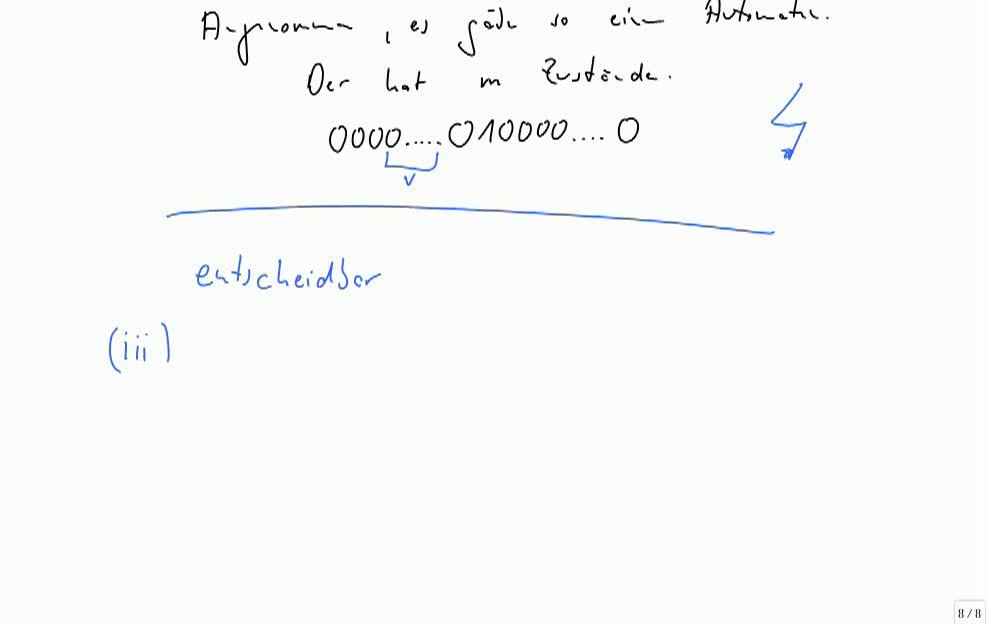 Angenommen, es gäbe so ein Automat.
Der hat m Zustände.
0000.....010000....0
v
entscheidbar
(iii)
8 / 8